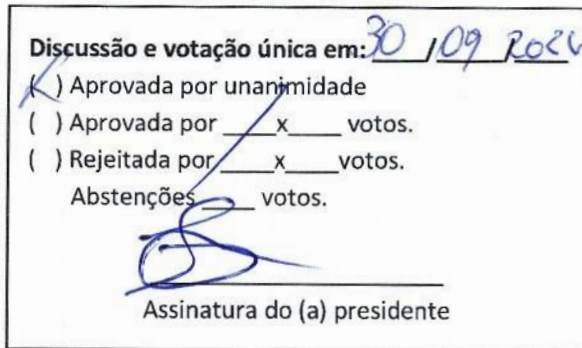 Discussão e votação única em: 30 / 09 2024
( ) Aprovada por unanimidade
( ) Aprovada por ____x____ votos.
( ) Rejeitada por ____x____votos.
Abstenções ____ votos.
Assinatura do (a) presidente